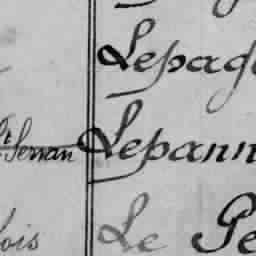 Lepag
St Servan Lepann
lois Le Pe